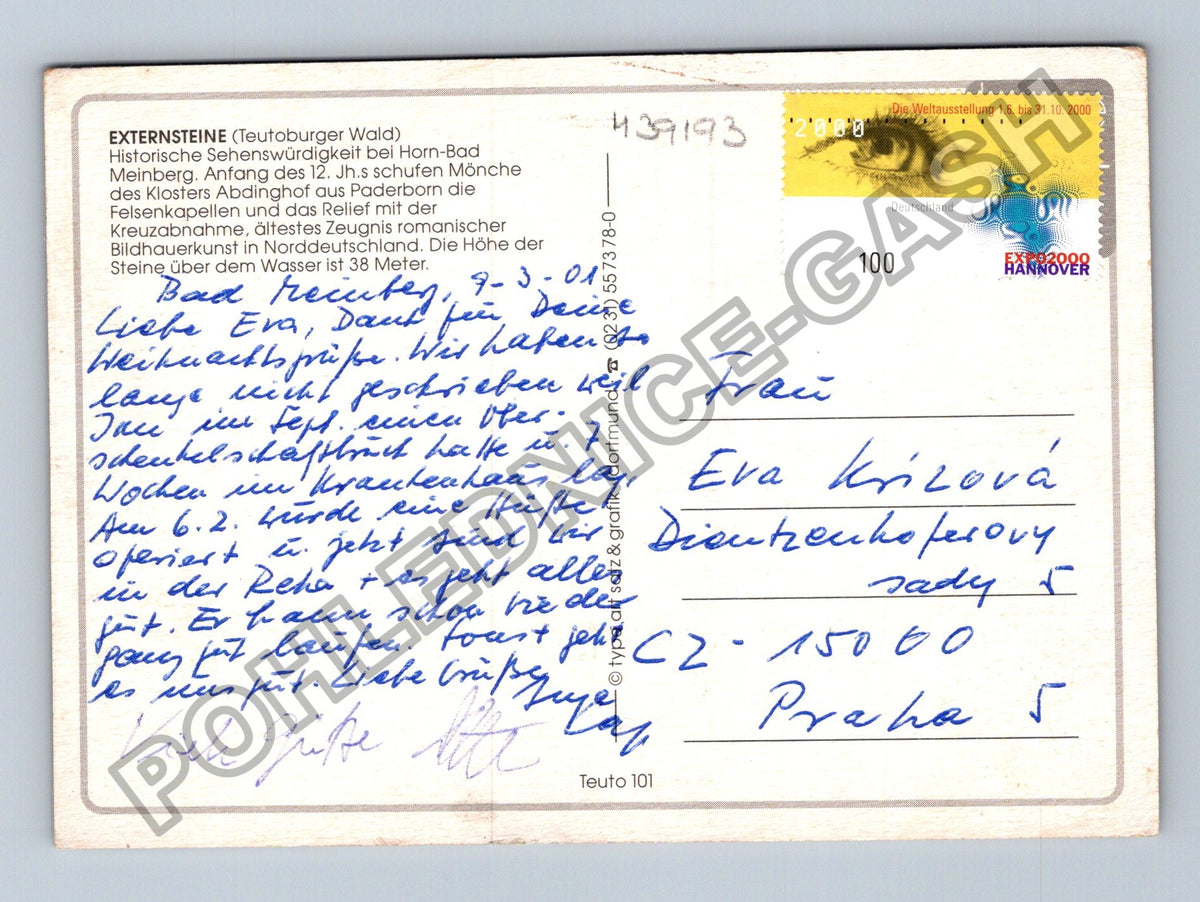 EXTERNSTEINE (Teutoburger Wald)
Historische Sehenswürdigkeit bei Horn-Bad
Meinberg. Anfang des 12. Jh.s schufen Mönche
des Klosters Abdinghof aus Paderborn die
Felsenkapellen und das Relief mit der
Kreuzabnahme, ältestes Zeugnis romanischer
Bildhauerkunst in Norddeutschland. Die Höhe der
Steine über dem Wasser ist 38 Meter.
Bad Meinberg, 9-3-01
Liebe Eva, Dank für Deine
Weihnachtsgrüße. Wir haben so
lange nicht geschrieben weil
Jan im Sept. einen Ober-
schenkelschaftbruch hatte u. 7
Wochen im Krankenhaus lag.
Am 6.2. wurde eine Hüfte
operiert u. jetzt sind wir
in der Reha + es geht alles
gut. Er kann schon wieder
ganz gut laufen. Sonst geht
es uns gut. Liebe Grüße
Inga
Grüße
439193
Die Weltausstellung 1.6. bis 31.10. 2000
2000
Deutschland
100
EXPO2000
HANNOVER
© type art satz & grafik, dortmund ☎ (0231) 557378-0
Frau
Eva Krízová
Dientzenhoferovy
sady 5
CZ - 15000
Praha 5
Teuto 101
POHLEDNICE-GASH